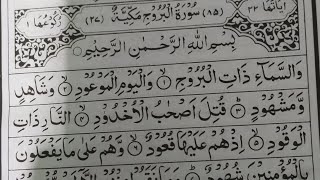 اٰيَاتُهَا ٢٢ (٨٥) سُوْرَةُ الْبُرُوْجِ مَكِّيَّةٌ (٢٧) رُكُوْعُهَا ١
بِسْمِ اللّٰهِ الرَّحْمٰنِ الرَّحِيْمِ
وَالسَّمَآءِ ذَاتِ الْبُرُوْجِ ١ وَالْيَوْمِ الْمَوْعُوْدِ ٢ وَشَاهِدٍ
وَّمَشْهُوْدٍ ٣ قُتِلَ اَصْحٰبُ الْاُخْدُوْدِ ٤ النَّارِ ذَاتِ
الْوَقُوْدِ ٥ اِذْ هُمْ عَلَيْهَا قُعُوْدٌ ٦ وَّهُمْ عَلٰى مَا يَفْعَلُوْنَ
بِالْمُؤْمِنِيْنَ شُهُوْدٌ